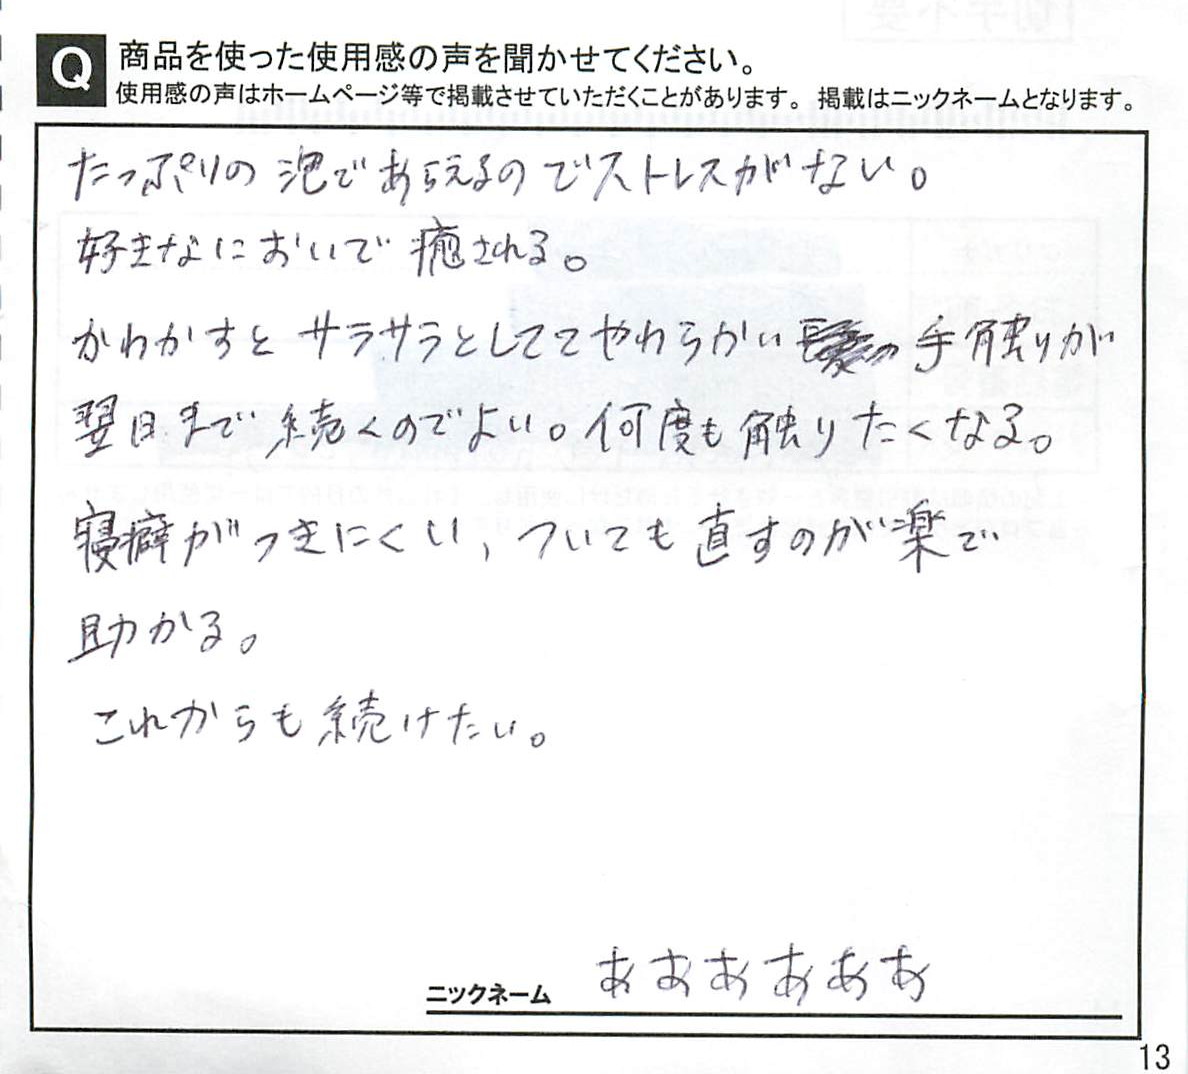 Q 商品を使った使用感の声を聞かせてください。
使用感の声はホームページ等で掲載させていただくことがあります。掲載はニックネームとなります。
たっぷりの泡であらえるのでストレスがない。
好きなにおいで癒される。
かわかすとサラサラとしててやわらかい髪の手触りが
翌日まで続くのでよい。何度も触りたくなる。
寝癖がつきにくい、ついても直すのが楽で
助かる。
これからも続けたい。
ニックネーム ああああああ
13